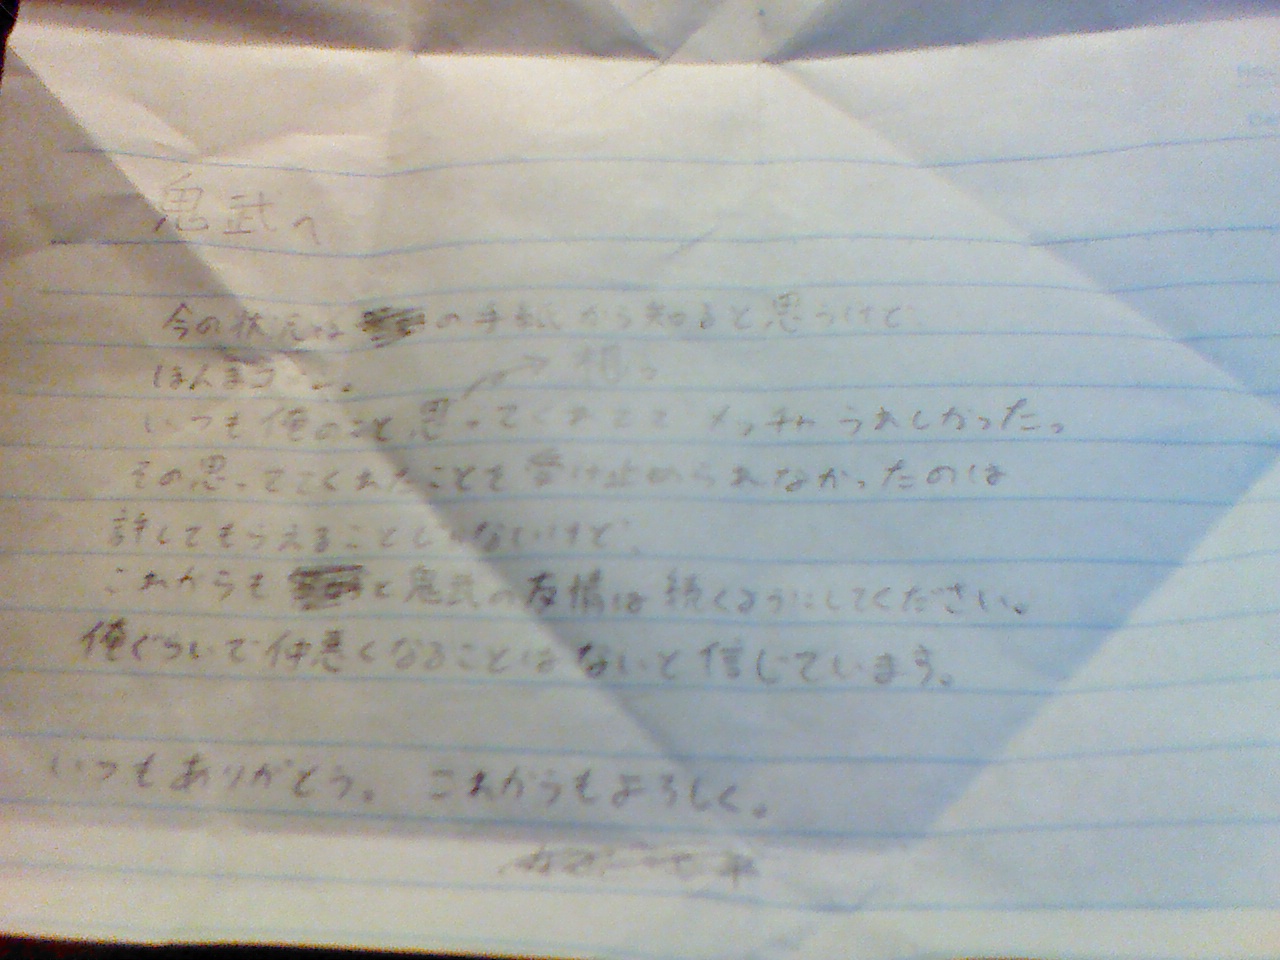 鬼武へ
今の状況は の手紙から知ると思うけど
ほんまゴメン。
想っ
いつも俺のこと思ってくれてて メッチャうれしかったっ
その思っててくれたことを受け止められなかったのは
許してもらえることじゃないけど、
これからも と鬼武の友情は続くようにしてください。
俺ぐらいで仲悪くなることはないと信じています。
いつもありがとう。 これからもよろしく。